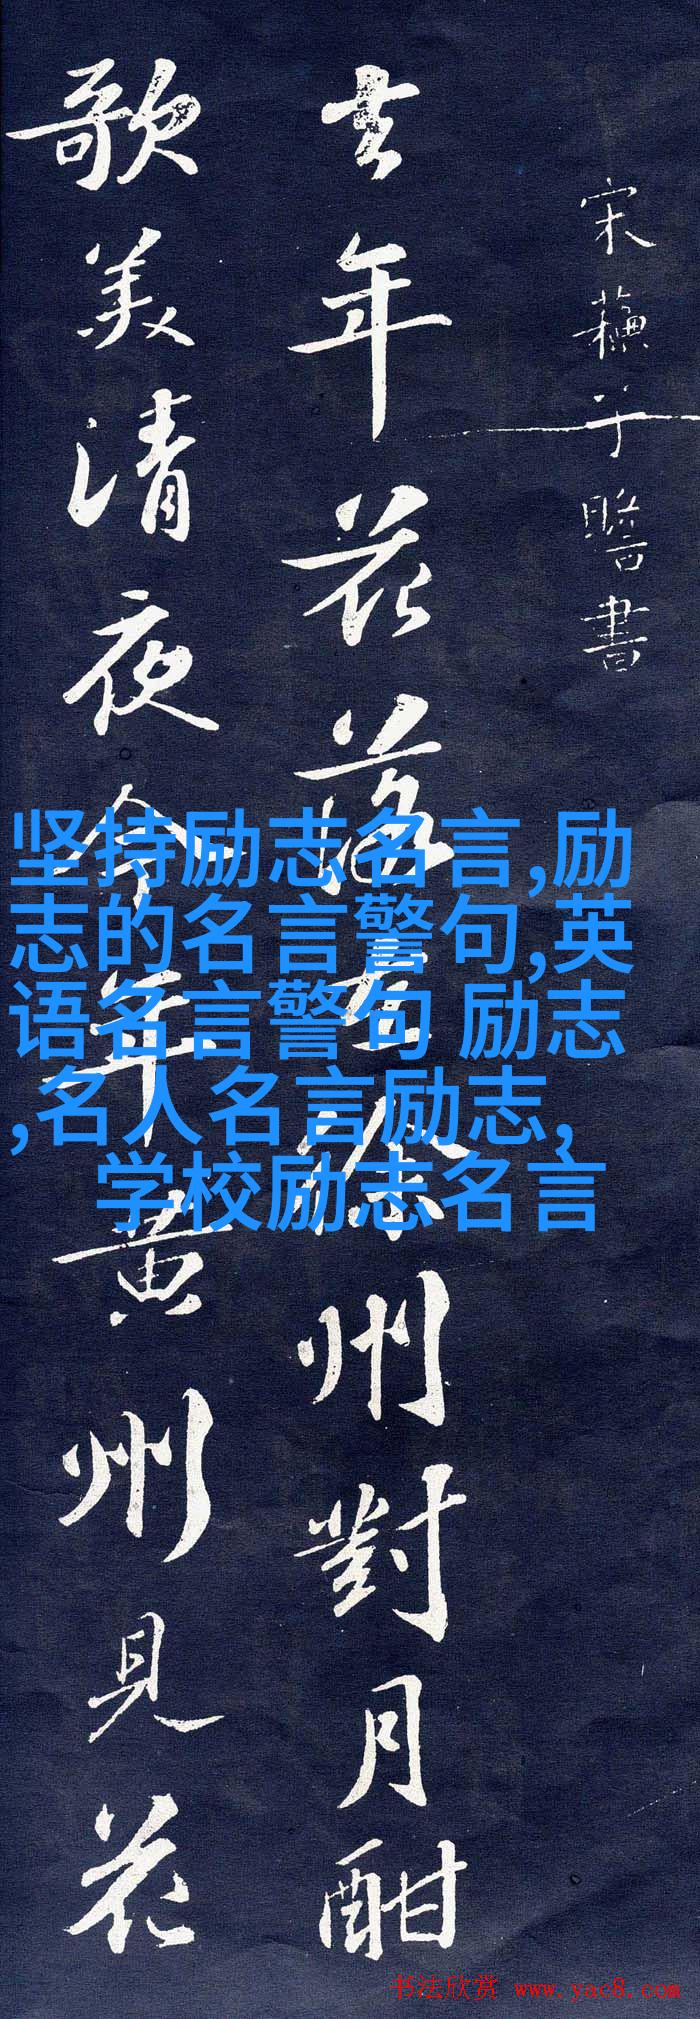 宋蘓子瞻書
去年花落在徐州對月酣
歌美清夜今年黄州見花
坚持励志名言,励
志的名言警句,英
语名言警句 励志
,名人名言励志,
学校励志名言
书法欣赏 www.yac8.com